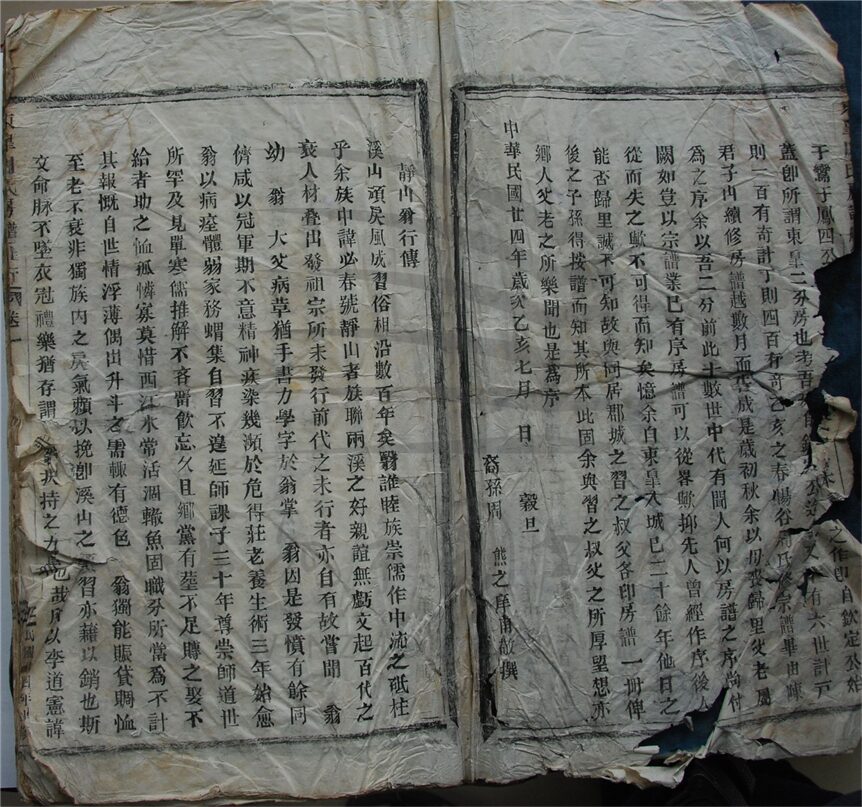 于鸞于鳳四公
蓋即所謂東皇二分房也考吾有六世計戸
則一百有奇計丁則四百有奇乙亥之春暘谷宗譜畢由
君子山續修房譜越數月而告成是歲初秋余以母喪歸里父老屬
為之序余以吾二分前此十數世中代有聞人何以房譜之序尚付
闕如豈以宗譜業已有序房譜可以從畧歟抑先人曾經作序後
從而失之歟不可得而知矣憶余自東皇入城已二十餘年他日之
能否歸里誠不可知故與同居郡城之習之叔父各印房譜一册俾
後之子孫得按譜而知其所本此固余與習之叔父之所厚望想亦
鄉人父老之所樂聞也是為序
中華民國廿四年歲次乙亥七月 日 穀旦
裔孫周 熊之 撰
靜山翁行傳
溪山頑戾風成習俗相沿數百年矣翳誰睦族崇儒作中流之砥柱
乎余族中諱必春號靜山者族聯兩溪之好親誼無虧文起百代之
衰人材疊出發祖宗所未發行前代之未行者亦自有故嘗聞 翁
幼 翁 大父病草猶手書力學字於翁掌 翁因是發憤有餘同
儕咸以冠軍期不意精神疾染幾瀕於危得莊老養生術三年始愈
翁以病痊體弱家務蝟集自習不遑延師課子三十年尊崇師道世
所罕及見單寒儒推解不吝嘗飲忘久且鄉黨有塟不足賻之娶不
給者助之恤孤憐寡莫惜西江水常活涸轍魚固職分所當為不計
其報慨自世情浮薄偶出升斗之需輒有德色 翁獨能賑貧賙恤
至老不衰非獨族内之戾氣賴以挽即溪山之習亦藉以銷也斯
文命脉不墜衣冠禮樂猶存謂 翁扶持之力也哉用以李道憲諱